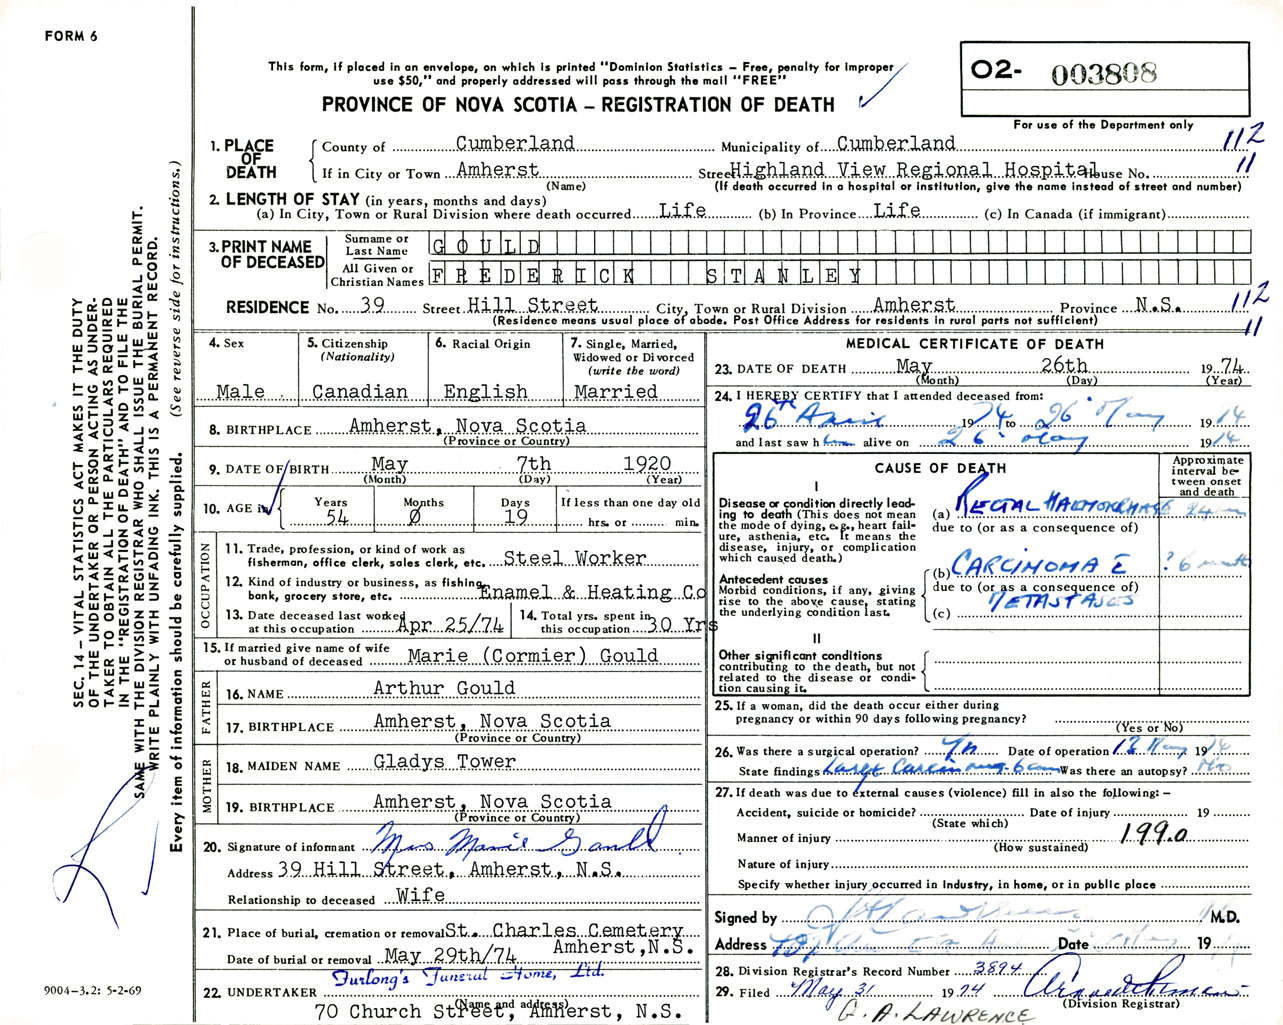 FORM 6
This form, if placed in an envelope, on which is printed "Dominion Statistics – Free, penalty for improper
use $50," and properly addressed will pass through the mail "FREE"
PROVINCE OF NOVA SCOTIA – REGISTRATION OF DEATH
O2- 003808
For use of the Department only
1. PLACE OF DEATH
County of Cumberland Municipality of Cumberland 112
If in City or Town Amherst Street Highland View Regional Hospital House No. 11
(Name) (If death occurred in a hospital or institution, give the name instead of street and number)
2. LENGTH OF STAY (in years, months and days)
(a) In City, Town or Rural Division where death occurred Life (b) In Province Life (c) In Canada (if immigrant)
3. PRINT NAME OF DECEASED
Surname or Last Name GOULD
All Given or Christian Names FREDERICK STANLEY
RESIDENCE No. 39 Street Hill Street City, Town or Rural Division Amherst Province N.S. 112
(Residence means usual place of abode. Post Office Address for residents in rural parts not sufficient) 11
4. Sex
Male
5. Citizenship
(Nationality)
Canadian
6. Racial Origin
English
7. Single, Married,
Widowed or Divorced
(write the word)
Married
8. BIRTHPLACE Amherst, Nova Scotia
(Province or Country)
9. DATE OF BIRTH May 7th 1920
(Month) (Day) (Year)
10. AGE in
Years Months Days If less than one day old
54 0 19 hrs. or min.
OCCUPATION
11. Trade, profession, or kind of work as
fisherman, office clerk, sales clerk, etc. Steel Worker
12. Kind of industry or business, as fishing,
bank, grocery store, etc. Enamel & Heating Co
13. Date deceased last worked
at this occupation Apr 25/74
14. Total yrs. spent in
this occupation 30 Yrs
15. If married give name of wife
or husband of deceased Marie (Cormier) Gould
FATHER
16. NAME Arthur Gould
17. BIRTHPLACE Amherst, Nova Scotia
(Province or Country)
MOTHER
18. MAIDEN NAME Gladys Tower
19. BIRTHPLACE Amherst, Nova Scotia
(Province or Country)
20. Signature of informant Mrs Marie Gould
Address 39 Hill Street, Amherst, N.S.
Relationship to deceased Wife
21. Place of burial, cremation or removal St. Charles Cemetery
Amherst, N.S.
Date of burial or removal May 29th/74
Furlong's Funeral Home, Ltd.
22. UNDERTAKER
(Name and address)
70 Church Street, Amherst, N.S.
MEDICAL CERTIFICATE OF DEATH
23. DATE OF DEATH May 26th 1974
(Month) (Day) (Year)
24. I HEREBY CERTIFY that I attended deceased from:
26th April 1974 to 26 May 1974
and last saw him alive on 26 May 1974
CAUSE OF DEATH
Approximate
interval be-
tween onset
and death
I
Disease or condition directly lead-
ing to death (This does not mean
the mode of dying, e.g., heart fail-
ure, asthenia, etc. It means the
disease, injury, or complication
which caused death.)
(a) RECTAL HAEMORRHAGE 24
due to (or as a consequence of)
Antecedent causes
Morbid conditions, if any, giving
rise to the above cause, stating
the underlying condition last.
(b) CARCINOMA E ? 6 months
due to (or as a consequence of)
METASTASES
(c)
II
Other significant conditions
contributing to the death, but not
related to the disease or condi-
tion causing it.
25. If a woman, did the death occur either during
pregnancy or within 90 days following pregnancy?
(Yes or No)
26. Was there a surgical operation? Yes Date of operation 13 May 1974
State findings Large Carcinoma Was there an autopsy? No
27. If death was due to external causes (violence) fill in also the following: –
Accident, suicide or homicide? Date of injury 19
(State which)
Manner of injury 199.0
(How sustained)
Nature of injury
Specify whether injury occurred in Industry, in home, or in public place
Signed by M.D.
Address Date 19
28. Division Registrar's Record Number 3894
29. Filed May 31 1974
(Division Registrar)
G. A. LAWRENCE
SEC. 14 – VITAL STATISTICS ACT MAKES IT THE DUTY
OF THE UNDERTAKER OR PERSON ACTING AS UNDER-
TAKER TO OBTAIN ALL THE PARTICULARS REQUIRED
IN THE "REGISTRATION OF DEATH" AND TO FILE THE
SAME WITH THE DIVISION REGISTRAR WHO SHALL ISSUE THE BURIAL PERMIT.
WRITE PLAINLY WITH UNFADING INK. THIS IS A PERMANENT RECORD.
Every item of information should be carefully supplied. (See reverse side for instructions.)
9004-3.2: 5-2-69